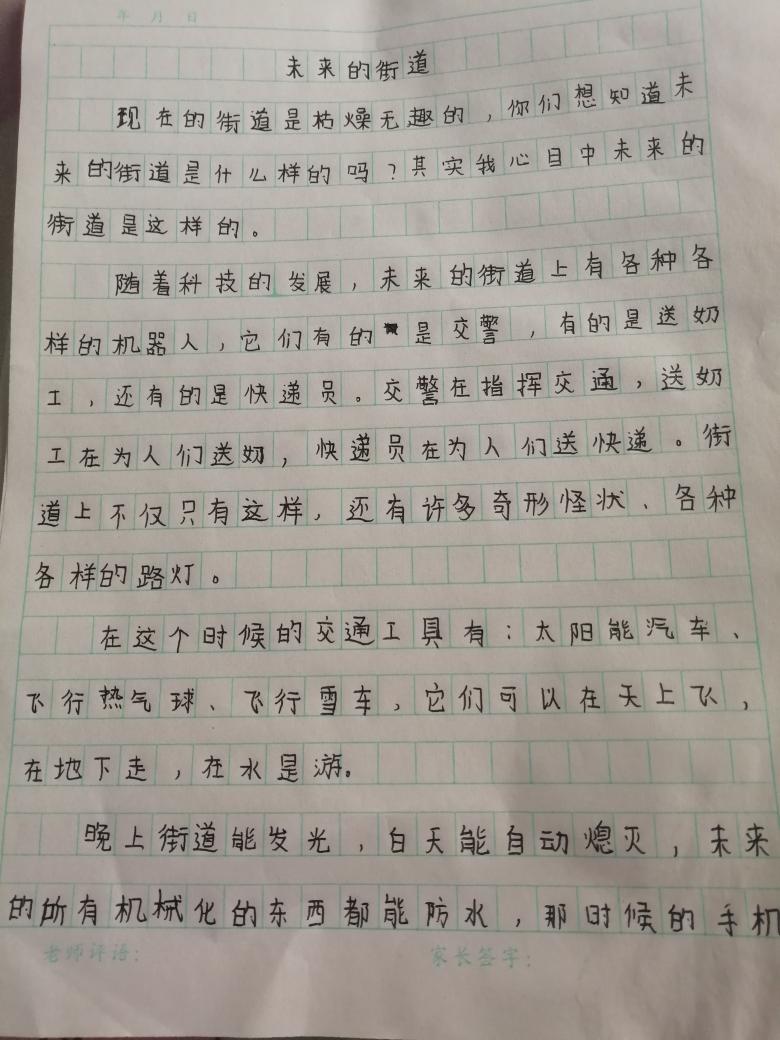 年 月 日
未来的街道
现在的街道是枯燥无趣的，你们想知道未
来的街道是什么样的吗？其实我心目中未来的
街道是这样的。
随着科技的发展，未来的街道上有各种各
样的机器人，它们有的是交警，有的是送奶
工，还有的是快递员。交警在指挥交通，送奶
工在为人们送奶，快递员在为人们送快递。街
道上不仅只有这样，还有许多奇形怪状、各种
各样的路灯。
在这个时候的交通工具有：太阳能汽车、
飞行热气球、飞行雪车，它们可以在天上飞，
在地下走，在水是游。
晚上街道能发光，白天能自动熄灭，未来
的所有机械化的东西都能防水，那时候的手机
老师评语： 家长签字：